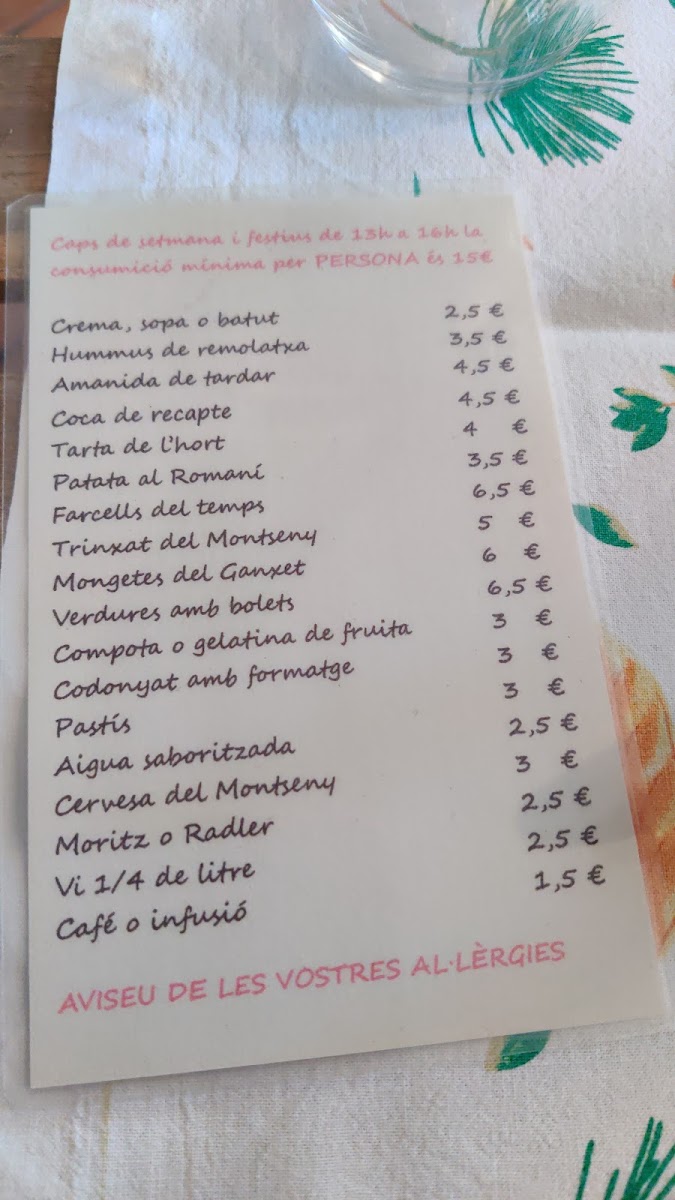 Caps de setmana i festius de 13h a 16h la
consumició mínima per PERSONA és 15€
Crema, sopa o batut 2,5 €
Hummus de remolatxa 3,5 €
Amanida de tardar 4,5 €
Coca de recapte 4,5 €
Tarta de l'hort 4 €
Patata al Romaní 3,5 €
Farcells del temps 6,5 €
Trinxat del Montseny 5 €
Mongetes del Ganxet 6 €
Verdures amb bolets 6,5 €
Compota o gelatina de fruita 3 €
Codonyat amb formatge 3 €
Pastís 3 €
Aigua saboritzada 2,5 €
Cervesa del Montseny 3 €
Moritz o Radler 2,5 €
Vi 1/4 de litre 2,5 €
Café o infusió 1,5 €
AVISEU DE LES VOSTRES AL·LÈRGIES